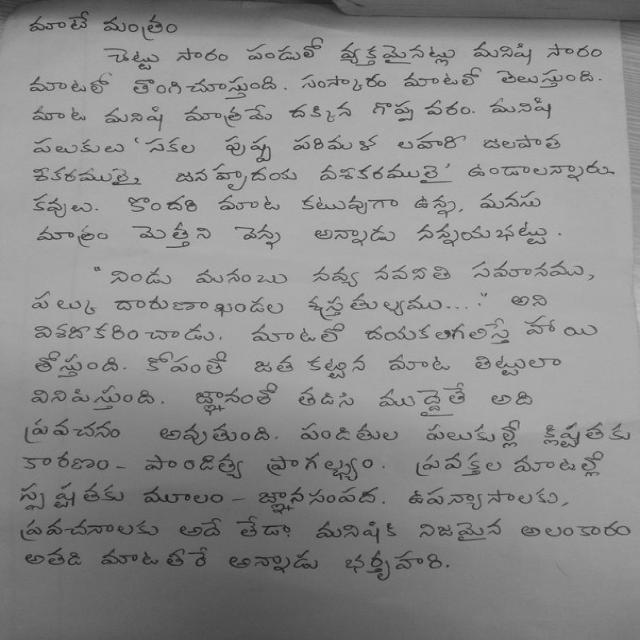 మాటే మంత్రం
చెట్టు సారం పండులో వ్యక్తమైనట్లు మనిషి సారం
మాటలో తొంగిచూస్తుంది. సంస్కారం మాటలో తెలుస్తుంది.
మాట మనిషి మాత్రమే దక్కిన గొప్ప వరం. మనిషి
పలుకులు 'సకల పుష్ప పరిమళ లహరీ జలపాత
శీకరములై, జనహృదయ వశీకరములై' ఉండాలన్నారు
కవులు. కొందరి మాట కటువుగా ఉన్నా, మనసు
మాత్రం మెత్తని వెన్న అన్నాడు నన్నయభట్టు.
"నిండు మనంబు నవ్య నవనీత సమానము,
పల్కు దారుణాఖండల శస్త్రతుల్యము...." అని
విశదీకరించాడు. మాటలో దయకలగలిస్తే హాయి
తోస్తుంది. కోపంతో జత కట్టిన మాట తిట్టులా
వినిపిస్తుంది. జ్ఞానంతో తడిసి ముద్దైతే అది
ప్రవచనం అవుతుంది. పండితుల పలుకుల్లో క్లిష్టతకు
కారణం - పాండిత్య ప్రాగల్భ్యం. ప్రవక్తల మాటల్లో
స్పష్టతకు మూలం - జ్ఞానసంపద. ఉపన్యాసాలకు,
ప్రవచనాలకు అదే తేడా! మనిషికి నిజమైన అలంకారం
అతడి మాటతీరే అన్నాడు భర్తృహరి.